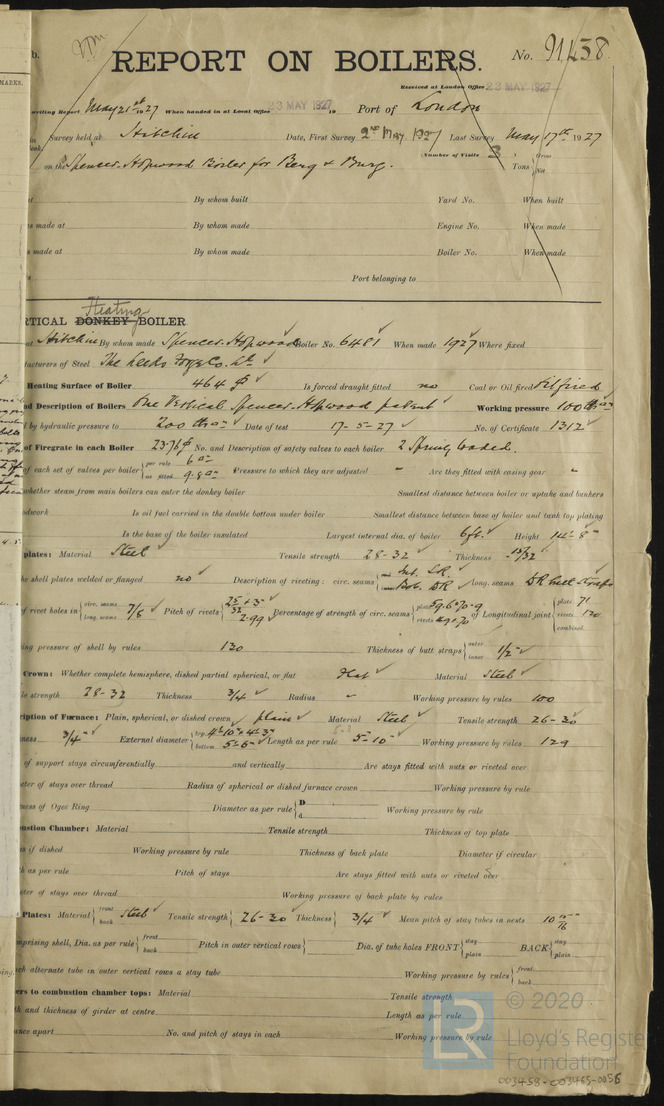 b.
REPORT ON BOILERS.
No. 91458
MARKS.
Received at London Office 23 MAY 1927
writing Report May 21st 1927 When handed in at Local Office 23 MAY 1927 19 Port of London
Survey held at Hitchin Date, First Survey 2nd May 1927 Last Survey May 17th 1927
Number of Visits 3
on the Spencer-Hopwood Boiler for Berg & Burg. Tons { Gross Net
By whom built Yard No. When built
s made at By whom made Engine No. When made
s made at By whom made Boiler No. When made
Port belonging to
Heating
RTICAL DONKEY BOILER
at Hitchin By whom made Spencer-Hopwood Boiler No. 6481 When made 1927 Where fixed
facturers of Steel The Leeds Forge Co. Ld.
Heating Surface of Boiler 464 Is forced draught fitted no Coal or Oil fired Oil fired
nd Description of Boilers One Vertical Spencer-Hopwood patent Working pressure 100
d by hydraulic pressure to 200 Date of test 17-5-27 No. of Certificate 1312
of Firegrate in each Boiler 23.76 No. and Description of safety valves to each boiler 2 Spring loaded.
of each set of valves per boiler { per rule 6 as fitted 9.8 Pressure to which they are adjusted " Are they fitted with easing gear "
whether steam from main boilers can enter the donkey boiler Smallest distance between boiler or uptake and bunkers
odwork Is oil fuel carried in the double bottom under boiler Smallest distance between base of boiler and tank top plating
Is the base of the boiler insulated Largest internal dia. of boiler 6 ft. Height 14'-8"
plates: Material Steel Tensile strength 28-32 Thickness 13/32
he shell plates welded or flanged no Description of riveting: circ. seams { Int. S.R. Bot. DR long. seams DR butt straps
of rivet holes in { circ. seams long. seams 7/8 Pitch of rivets { 2.99 Percentage of strength of circ. seams { plate rivets of Longitudinal joint { plate 71 rivets 120 combined
ing pressure of shell by rules 120 Thickness of butt straps { outer inner 1/2"
Crown: Whether complete hemisphere, dished partial spherical, or flat Flat Material Steel
le strength 28-32 Thickness 3/4 Radius " Working pressure by rules 100
ription of Furnace: Plain, spherical, or dished crown plain Material Steel Tensile strength 26-30
ness 3/4" External diameter { top 4'-10" x 4'-3" bottom 5'-6" Length as per rule 5'-10" Working pressure by rules 129
of support stays circumferentially and vertically Are stays fitted with nuts or riveted over
eter of stays over thread Radius of spherical or dished furnace crown Working pressure by rule
ness of Ogee Ring Diameter as per rule { D d Working pressure by rule
ustion Chamber: Material Tensile strength Thickness of top plate
s if dished Working pressure by rule Thickness of back plate Diameter if circular
h as per rule Pitch of stays Are stays fitted with nuts or riveted over
ter of stays over thread Working pressure of back plate by rules
Plates: Material { front back Steel Tensile strength { 26-30 Thickness { 3/4" Mean pitch of stay tubes in nests 10
mprising shell, Dia. as per rule { front back Pitch in outer vertical rows { Dia. of tube holes FRONT { stay plain BACK { stay plain
ch alternate tube in outer vertical rows a stay tube Working pressure by rules { front back
ers to combustion chamber tops: Material Tensile strength
th and thickness of girder at centre Length as per rule
ance apart No. and pitch of stays in each Working pressure by rule
LR © 2020 Lloyd's Register Foundation
003458-003465-0056